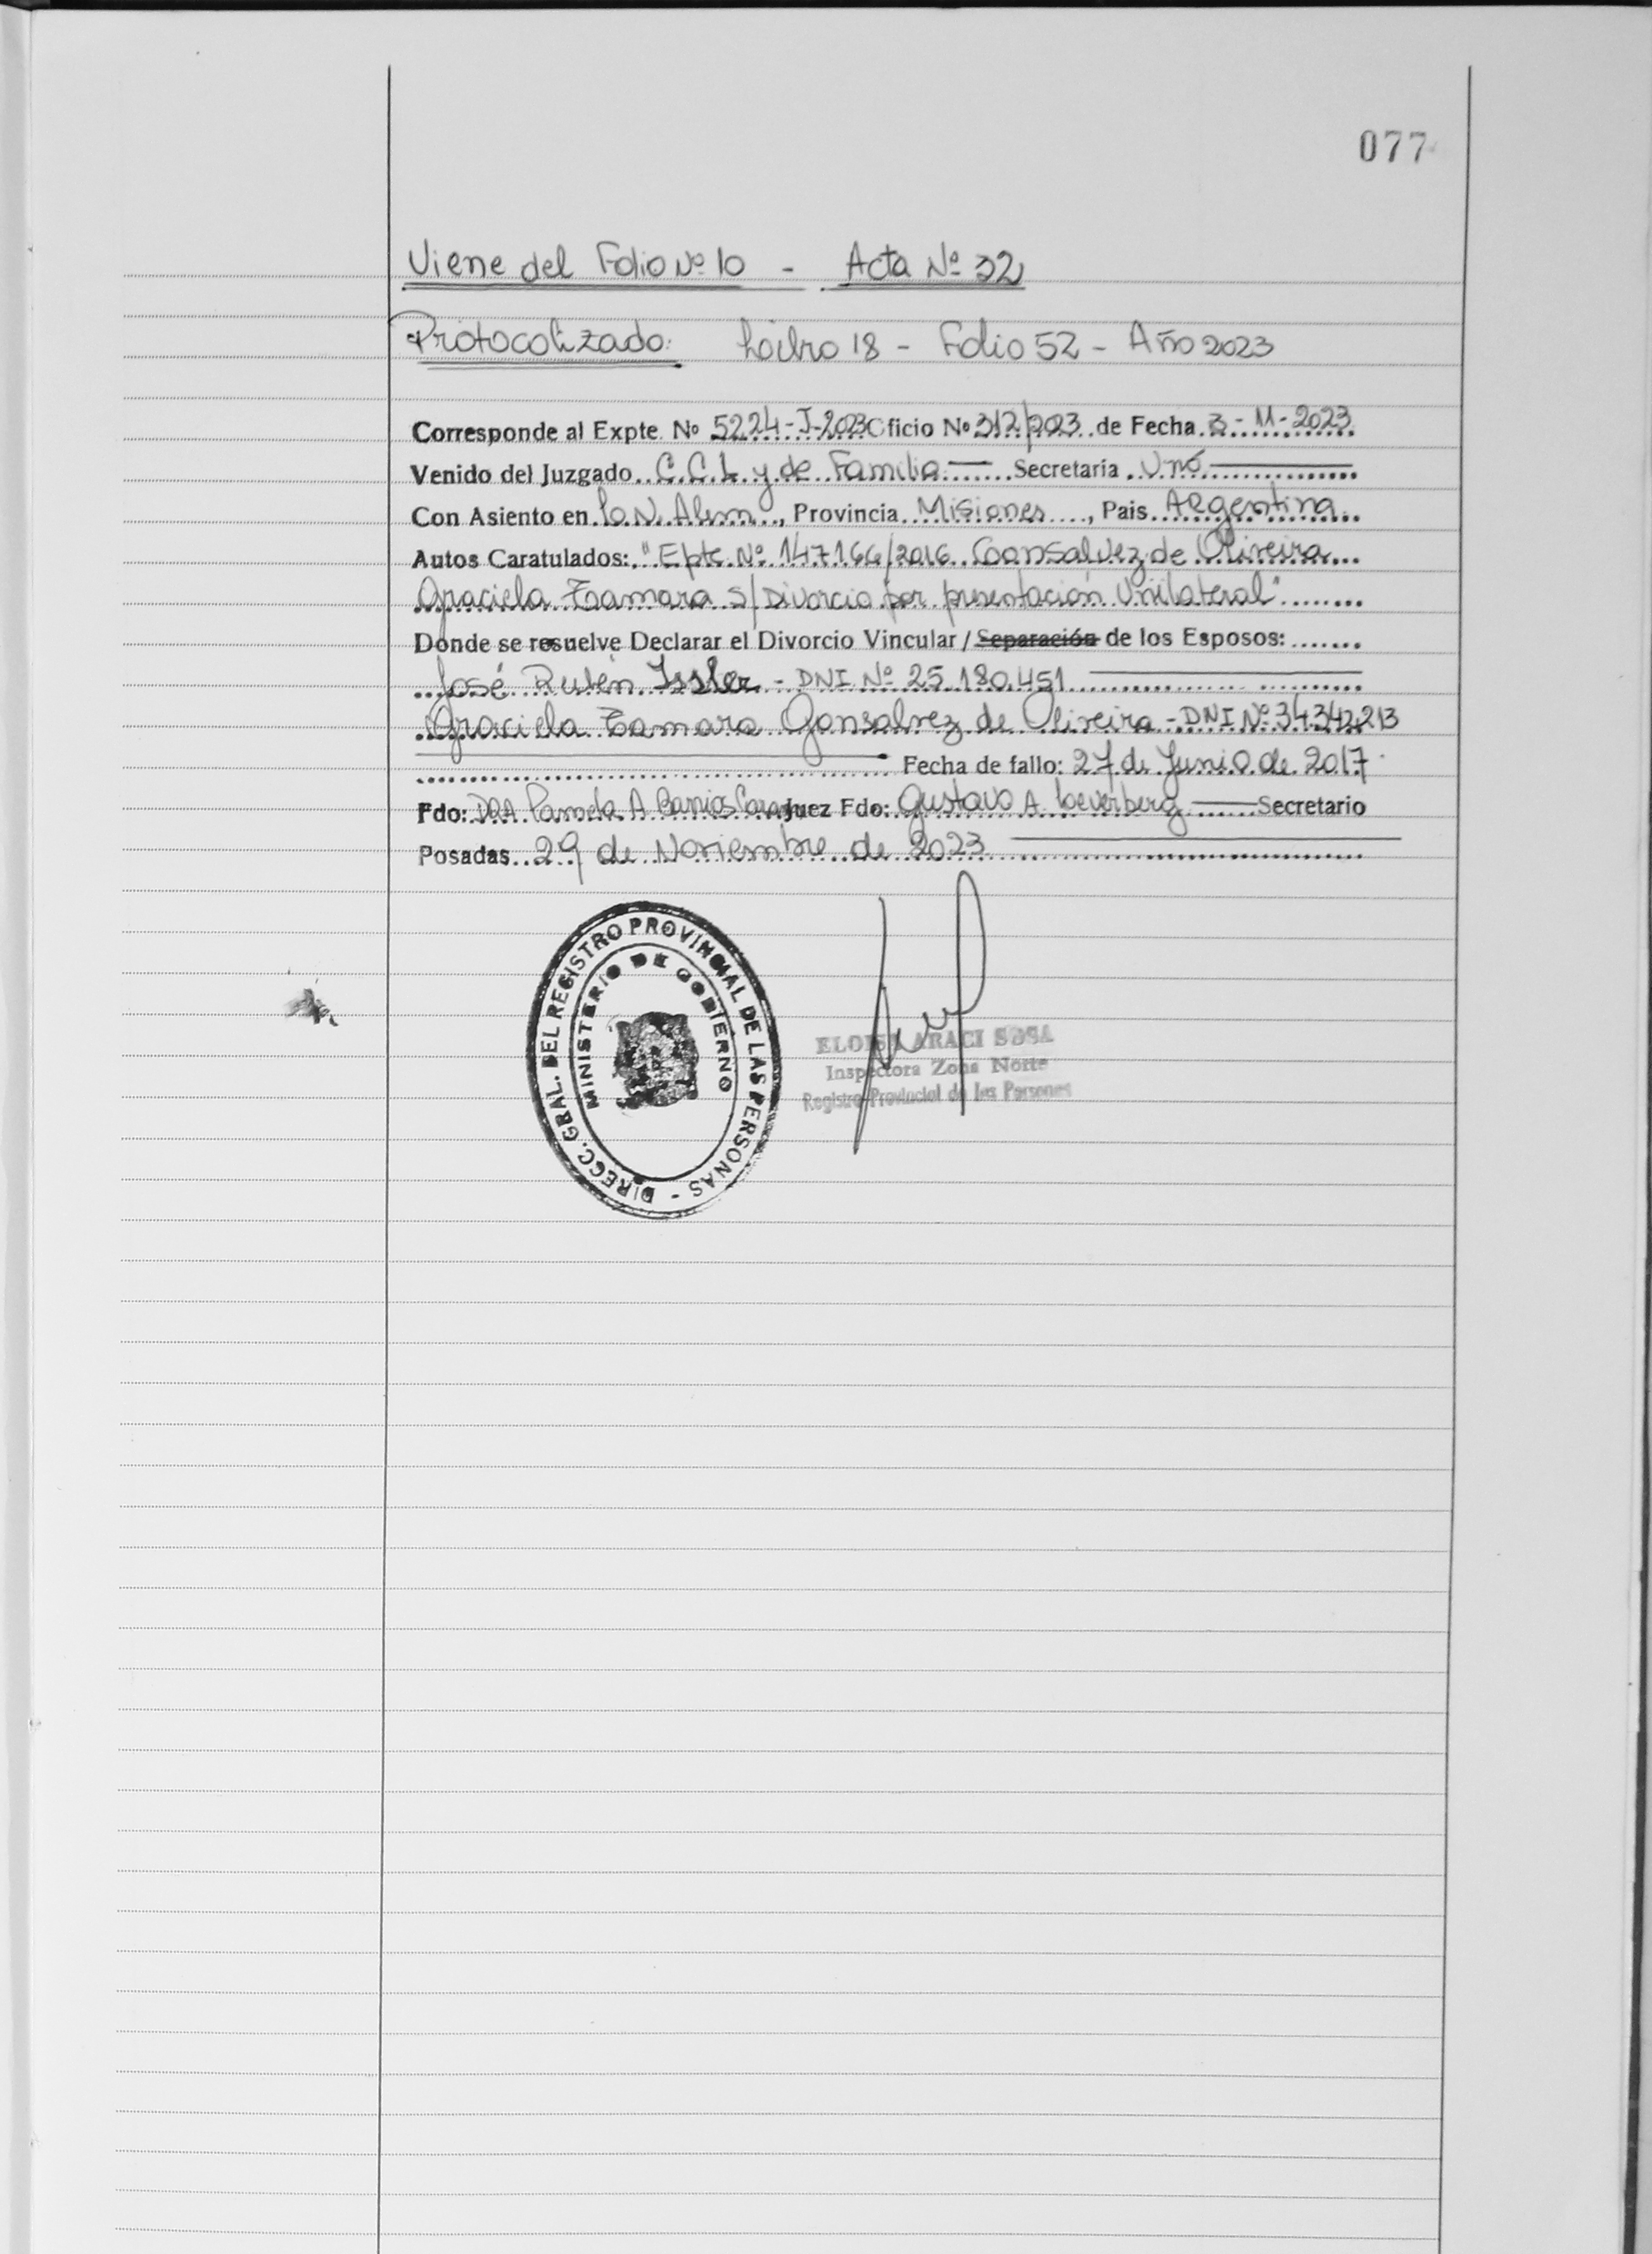 077
Viene del Folio Nº 10 - Acta Nº 32
Protocolizado: Libro 18 - Folio 52 - Año 2023
Corresponde al Expte. Nº 5224-J-2023 Oficio Nº 312/2023 de Fecha 3-11-2023
Venido del Juzgado C.C.L. y de Familia Secretaria Uno
Con Asiento en L.N. Alem, Provincia Misiones, Pais Argentina
Autos Caratulados: "Epte. Nº 147166/2016 Gonsalvez de Oliveira
Graciela Tamara S/ Divorcio por presentación Unilateral"
Donde se resuelve Declarar el Divorcio Vincular / Separación de los Esposos:
José Rubén Issler - DNI Nº 25.180.451
Graciela Tamara Gonsalvez de Oliveira - DNI Nº 34.342.213
Fecha de fallo: 27 de Junio de 2017
Fdo: DRA Pamela A Barrios Juez Fdo: Gustavo A. Loeverberg Secretario
Posadas 29 de Noviembre de 2023
DIRECC. GRAL. DEL REGISTRO PROVINCIAL DE LAS PERSONAS -
MINISTERIO DE GOBIERNO
ELOISA ARACI SOSA
Inspectora Zona Norte
Registro Provincial de las Personas